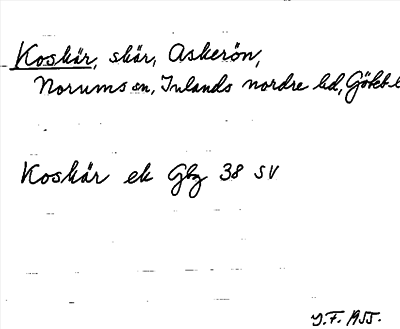 Koskär, skär, Askerön,
Norums sn, Inlands nordre hd, Göteb.
Koskär ek Gbg 38 SV
J.F. 1955.